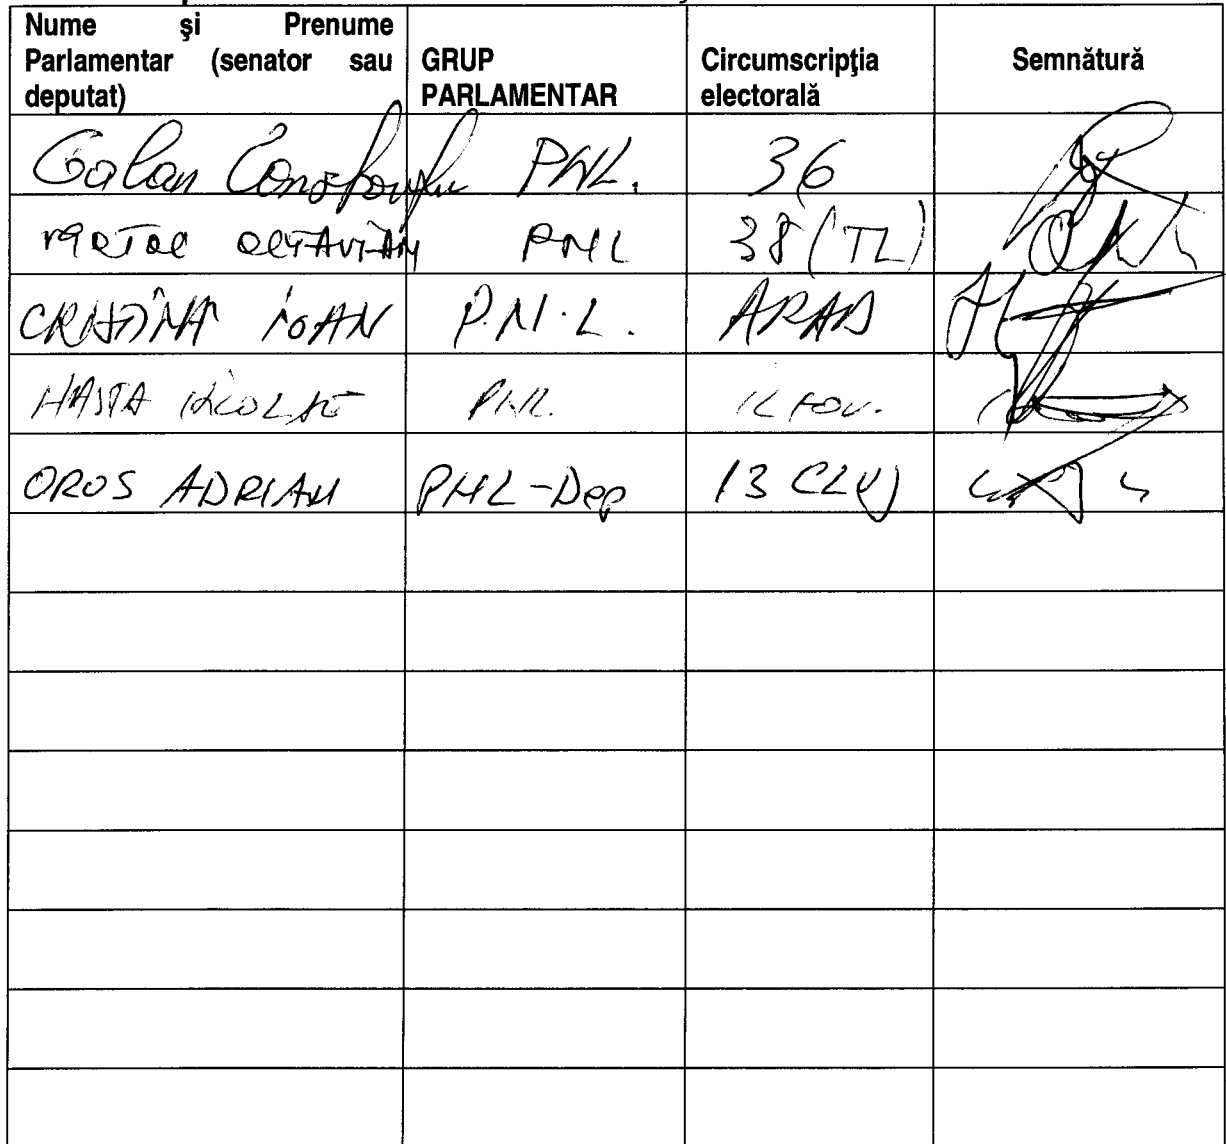 Nume şi Prenume
Parlamentar (senator sau
deputat)
GRUP
PARLAMENTAR
Circumscripţia
electorală
Semnătură
Galan PNL. 36
OCTAVIAN PNL 38 (TL)
IOAN P.N.L. ARAD
PNL. ILFOV.
OROS ADRIAN PNL-Dep 13 CLUJ